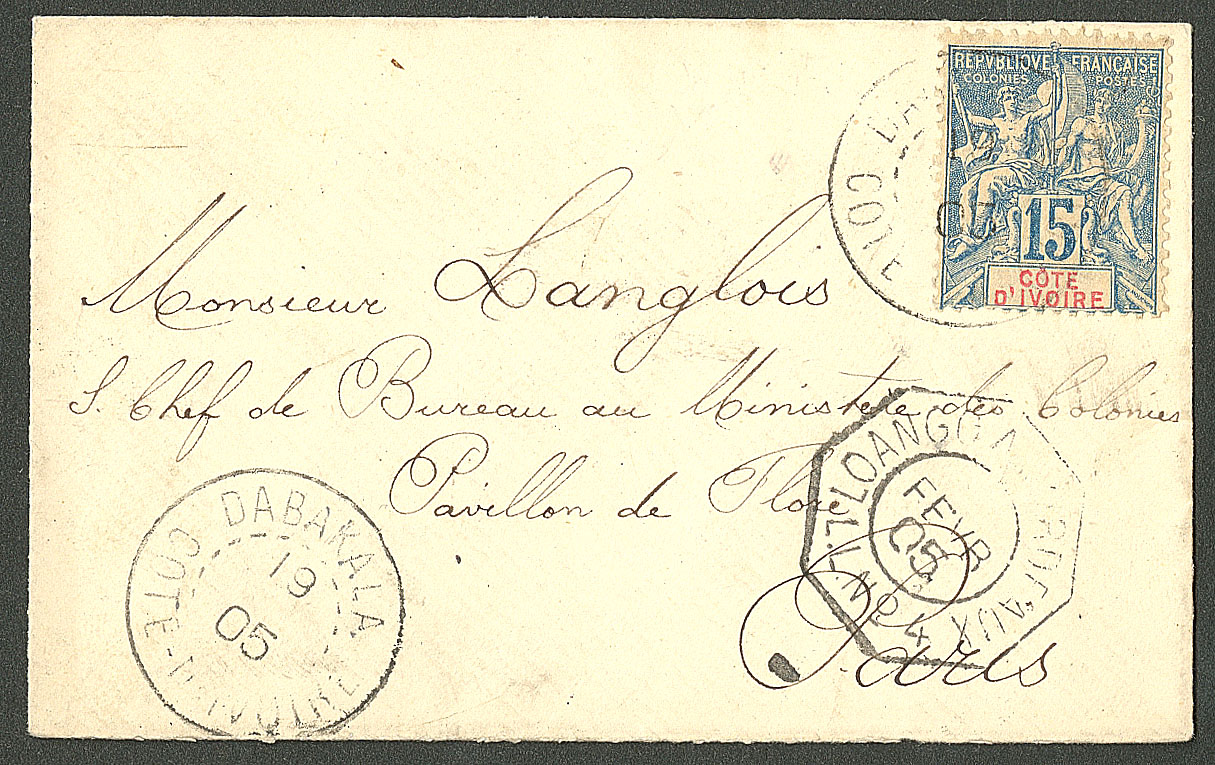 REPVBLIQVE FRANÇAISE
COLONIES POSTES
15
CÔTE
D'IVOIRE
COTE
05
Monsieur Langlois
S. Chef de Bureau au Ministère des Colonies
Pavillon de Flore
Paris
DABAKALA
19
05
COTE-D'IVOIRE
LOANGO
FEVR
05
L.L. No 4